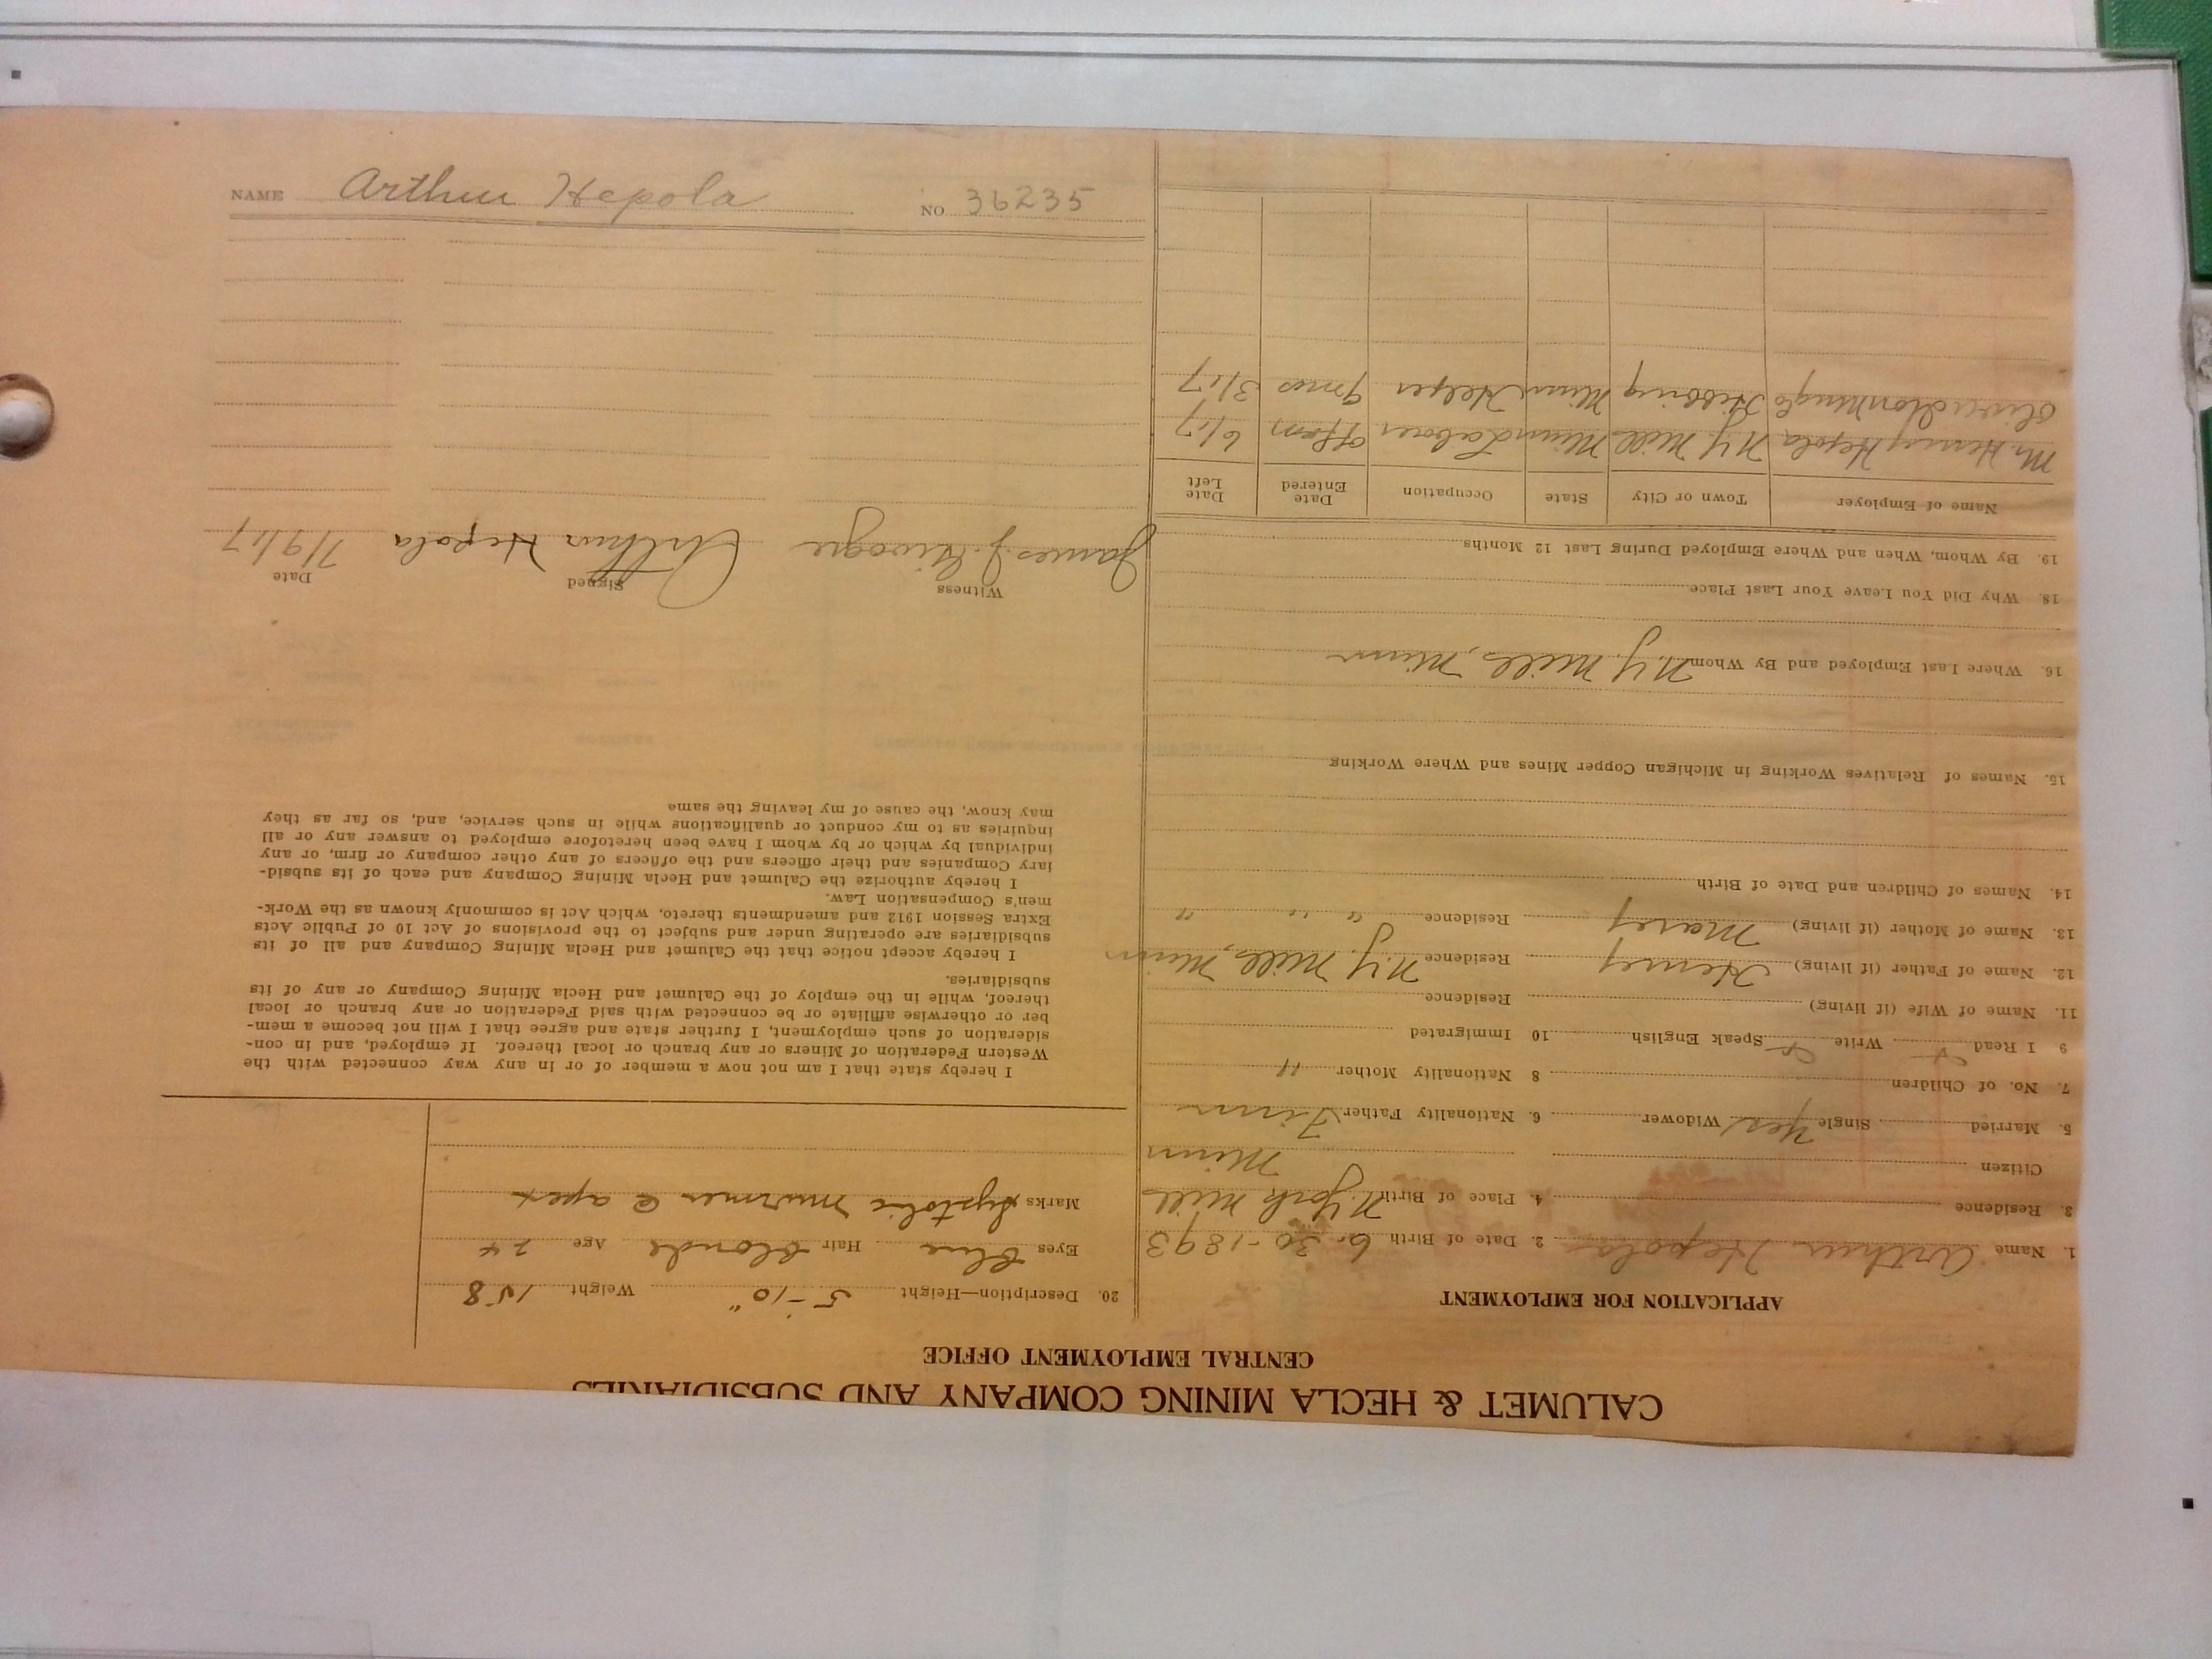 CALUMET & HECLA MINING COMPANY AND SUBSIDIARIES
CENTRAL EMPLOYMENT OFFICE
APPLICATION FOR EMPLOYMENT
1. Name Arthur Hepola 2. Date of Birth 6-30-1893
3. Residence 4. Place of Birth N. York Mill
Citizen Minn
5. Married Single Yes Widower 6. Nationality Father Finn
7. No. of Children 8 Nationality Mother "
9 I Read Write Speak English 10 Immigrated
11. Name of Wife (if living) Residence
12. Name of Father (if living) Henry Residence N.Y. Mills, Minn
13. Name of Mother (if living) Marey Residence " " "
14. Names of Children and Date of Birth
15. Names of Relatives Working in Michigan Copper Mines and Where Working
16. Where Last Employed and By Whom N.Y. Mills, Minn
18. Why Did You Leave Your Last Place
19. By Whom, When and Where Employed During Last 12 Months
Name of Employer Town or City State Occupation Date Entered Date Left
Mr. Henry Hepola N Y Mill Minn Laborer 6/17
Oliver Iron Hibbing Minn Helper 9 mos 3/17
20. Description—Height 5-10" Weight 158
Eyes Blue Hair Blonde Age 24
Marks Systolic murmer @ apex
I hereby state that I am not now a member of or in any way connected with the
Western Federation of Miners or any branch or local thereof. If employed, and in con-
sideration of such employment, I further state and agree that I will not become a mem-
ber or otherwise affiliate or be connected with said Federation or any branch or local
thereof, while in the employ of the Calumet and Hecla Mining Company or any of its
subsidiaries.
I hereby accept notice that the Calumet and Hecla Mining Company and all of its
subsidiaries are operating under and subject to the provisions of Act 10 of Public Acts
Extra Session 1912 and amendments thereto, which Act is commonly known as the Work-
men's Compensation Law.
I hereby authorize the Calumet and Hecla Mining Company and each of its subsid-
iary Companies and their officers and the officers of any other company or firm, or any
individual by which or by whom I have been heretofore employed to answer any or all
inquiries as to my conduct or qualifications while in such service, and, so far as they
may know, the cause of my leaving the same
Witness Signed Date
James J. Arthur Hepola 7/9/17
NAME Arthur Hepola NO 36235